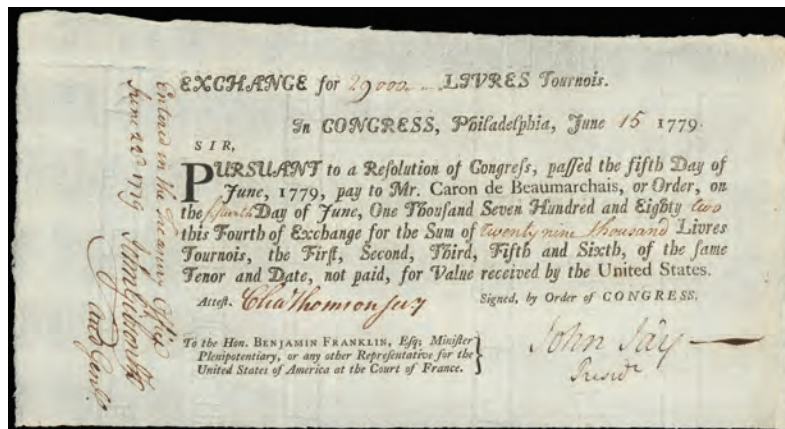 EXCHANGE for 29000 LIVRES Tournois.
In CONGRESS, Philadelphia, June 15 1779.
SIR,
PURSUANT to a Reſolution of Congreſs, paſſed the fifth Day of
June, 1779, pay to Mr. Caron de Beaumarchais, or Order, on
the Day of June, One Thouſand Seven Hundred and Eighty two
this Fourth of Exchange for the Sum of twenty nine thousand Livres
Tournois, the Firſt, Second, Third, Fifth and Sixth, of the ſame
Tenor and Date, not paid, for Value received by the United States.
Atteſt. Cha Thomson secy
Signed, by Order of CONGRESS.
To the Hon. BENJAMIN FRANKLIN, Eſq; Miniſter
Plenipotentiary, or any other Repreſentative for the
United States of America at the Court of France.
John Jay
Presidt
Entered in the Treasury Office
June 22d 1779 John Gibson
Aud Genl.